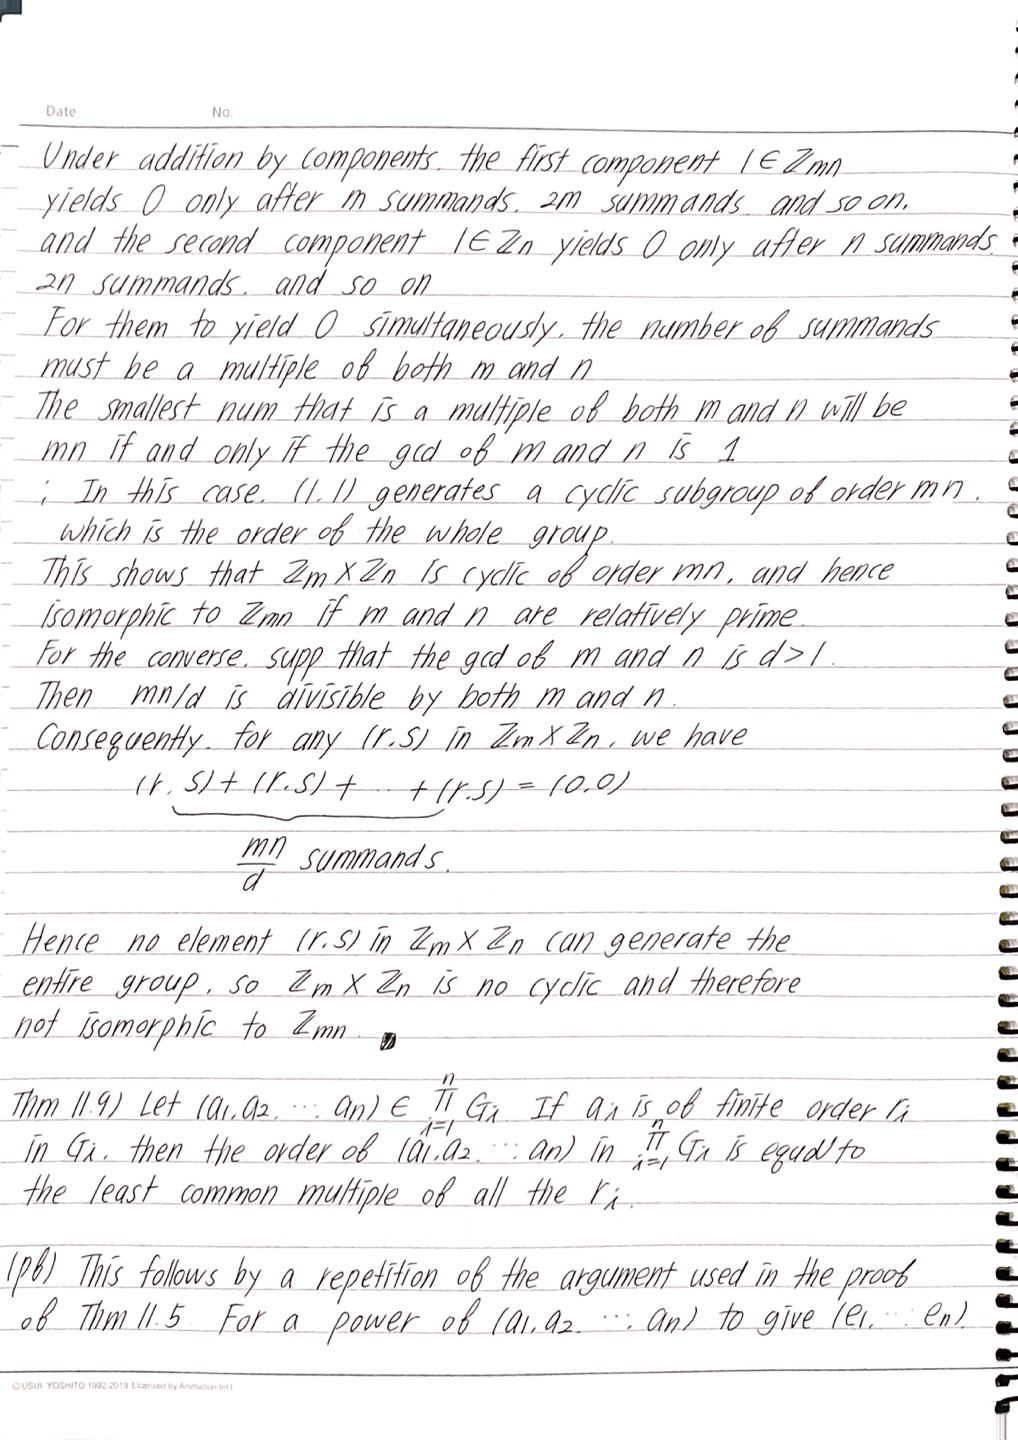 Date. No.
Under addition by components. the first component 1 ∈ ℤmn
yields 0 only after m summands. 2m summands and so on.
and the second component 1 ∈ ℤn yields 0 only after n summands.
2n summands. and so on
For them to yield 0 simultaneously. the number of summands
must be a multiple of both m and n
The smallest num that is a multiple of both m and n will be
mn if and only if the gcd of m and n is 1
; In this case. (1.1) generates a cyclic subgroup of order mn.
which is the order of the whole group.
This shows that ℤm × ℤn is cyclic of order mn, and hence
isomorphic to ℤmn if m and n are relatively prime.
For the converse. supp that the gcd of m and n is d>1.
Then mn/d is divisible by both m and n.
Consequently. for any (r.s) in ℤm × ℤn, we have
(r. s) + (r.s) + ... + (r.s) = (0.0)
mn/d summands.
Hence no element (r.s) in ℤm × ℤn can generate the
entire group. so ℤm × ℤn is no cyclic and therefore
not isomorphic to ℤmn.
Thm 11.9) Let (a1.a2. ... an) ∈ ∏_{i=1}^{n} Gi If ai is of finite order ri
in Gi. then the order of (a1.a2. ... an) in ∏_{i=1}^{n} Gi is equal to
the least common multiple of all the ri.
(pf) This follows by a repetition of the argument used in the proof
of Thm 11.5 For a power of (a1.a2. ... an) to give (e1. ... en).
© USUI YOSHITO 1992-2013 Licensed by Animation Int'l